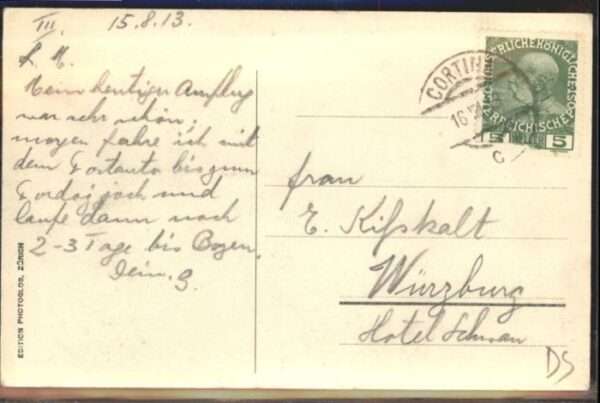 III. 15.8.13.
L. M.
Mein heutiger Ausflug
war sehr schön;
morgen fahre ich mit
dem Postauto bis zum
Pordoijoch und
laufe dann noch
2-3 Tage bis Bozen.
Dein
EDITION PHOTOGLOB, ZÜRICH
CORTINA
16
C
5 5
Frau
E. Kißkalt
Würzburg
Hotel Schwan
DS